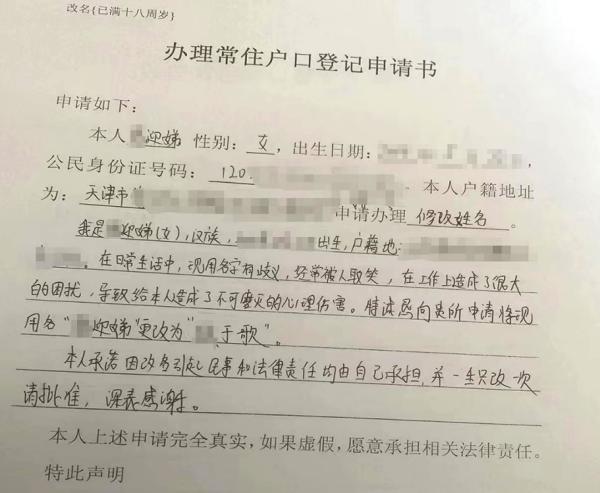 改名{已满十八周岁}
办理常住户口登记申请书
申请如下：
本人 迎娣 性别：女，出生日期：，
公民身份证号码：120. 本人户籍地址
为：天津市 申请办理 修改姓名。
我是 迎娣(女),汉族, 出生,户籍地:
。在日常生活中，现用名字有歧义，经常被人取笑，在工作上造成了很大
的困扰，导致给本人造成了不可磨灭的心理伤害。特决然向贵所申请将现
用名“ 迎娣”更改为“ 于歌”。
本人承诺因改名引起民事和法律责任均由自己承担，并一生只改一次
请批准，深表感谢。
本人上述申请完全真实，如果虚假，愿意承担相关法律责任。
特此声明